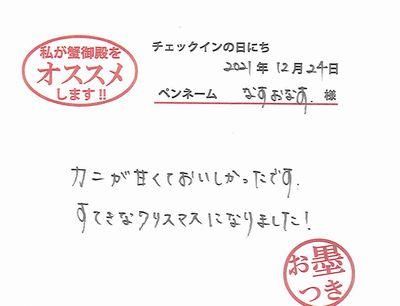 私が蟹御殿を
オススメ
します!!
チェックインの日にち
2021年12月24日
ペンネーム なすおなす. 様
カニが甘くておいしかったです.
すてきなクリスマスになりました!
お墨
つき